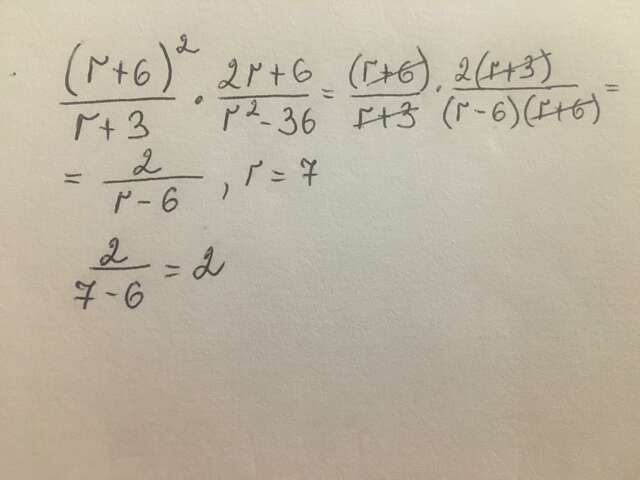 (r+6)² / (r+3) · (2r+6) / (r²-36) = (r+6) / (r+3) · 2(r+3) / ((r-6)(r+6)) =
= 2 / (r-6) , r = 7
2 / (7-6) = 2